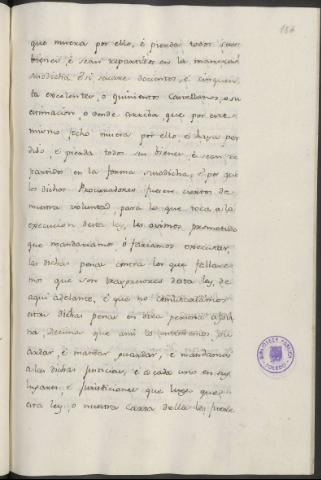 154
que muera por ello, é pierda todos sus
bienes, é sean repartidos en la manera
susodicha é si sacare docientos, é cinquen
ta excelentes, o quinientos Castellanos, o su
estimacion, o donde arriba, que por esse
mismo fecho muera por ello, é haya per
dido, é pierda todos sus bienes, é sean re
partidos en la forma susodicha, é por que
los dichos Procuradores fueren ciertos de
nuestra voluntad, para lo que toca a la
execucion desta ley, les ovimos prometido
que mandariamos é fariamos executar
las dichas penas contra los que fallare
mos que son trasgresores desta ley, de
aqui adelante, é que no comutariamos
estas dichas penas en otra pena
decimos que ansi lo entendemos gu
ardar, é mandar guardar, é mandamos
a las dichas justicias, é a cada uno en sus
lugares, é jurisdiciones que luego que
esta ley, o nuestra carta della les fuere
BIBLIOTECA PUBLICA
TOLEDO